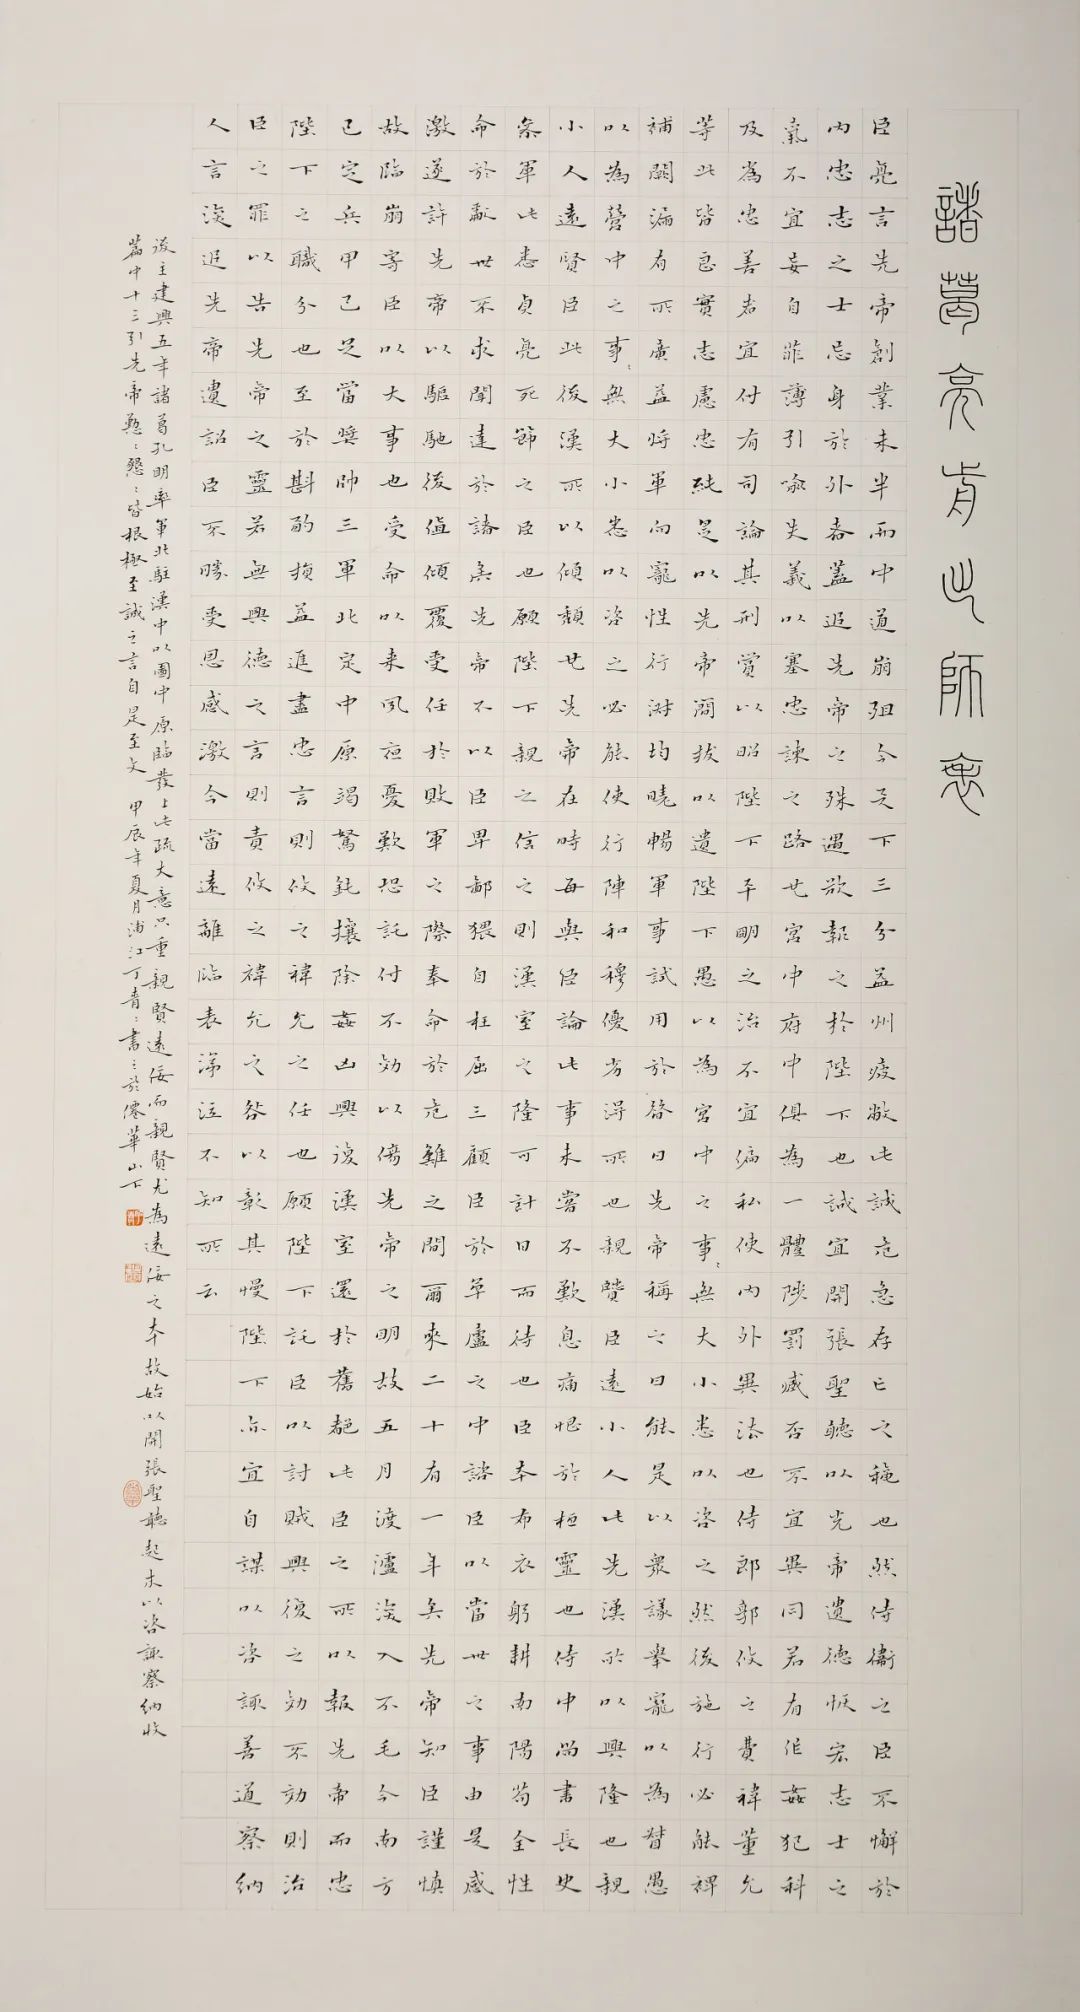 諸葛亮前出師表
臣亮言先帝創業未半而中道崩殂今天下三分益州疲敝此誠危急存亡之秋也然侍衛之臣不懈於
內忠志之士忘身於外者蓋追先帝之殊遇欲報之於陛下也誠宜開張聖聽以光帝遺德恢宏志士之
氣不宜妄自菲薄引喻失義以塞忠諫之路也宮中府中俱為一體陟罰臧否不宜異同若有作姦犯科
及為忠善者宜付有司論其刑賞以昭陛下平明之治不宜偏私使內外異法也侍郎郭攸之費禕董允
等此皆良實志慮忠純是以先帝簡拔以遺陛下愚以為宮中之事〻無大小悉以咨之然後施行必能裨
補闕漏有所廣益將軍向寵性行淑均曉暢軍事試用於昔日先帝稱之曰能是以眾議舉寵以為督愚
以為營中之事〻無大小悉以咨之必能使行陣和穆優劣得所也親賢臣遠小人此先漢所以興隆也親
小人遠賢臣此後漢所以傾頹也先帝在時每與臣論此事未嘗不歎息痛恨於桓靈也侍中尚書長史
參軍此悉貞亮死節之臣也願陛下親之信之則漢室之隆可計日而待也臣本布衣躬耕南陽苟全性
命於亂世不求聞達於諸侯先帝不以臣卑鄙猥自枉屈三顧臣於草廬之中諮臣以當世之事由是感
激遂許先帝以驅馳後值傾覆受任於敗軍之際奉命於危難之間爾來二十有一年矣先帝知臣謹慎
故臨崩寄臣以大事也受命以來夙夜憂歎恐託付不効以傷先帝之明故五月渡瀘深入不毛今南方
已定兵甲已足當獎帥三軍北定中原竭駑鈍攘除姦凶興復漢室還於舊都此臣之所以報先帝而忠
陛下之職分也至於斟酌損益進盡忠言則攸之禕允之任也願陛下託臣以討賊興復之効不効則治
臣之罪以告先帝之靈若無興德之言則責攸之禕允之咎以彰其慢陛下亦宜自謀以咨諏善道察納
人言深追先帝遺詔臣不勝受恩感激今當遠離臨表涕泣不知所云
後主建興五年諸葛孔明率軍北駐漢中以圖中原臨發上此疏大意只重親賢遠佞而親賢尤為遠佞之本故始以開張聖聽起末以咨諏察納收
篇中十三引先帝懃〻懇〻皆根極至誠之言自是至文 甲辰年夏月浦江丁青〻書之於僊華山下